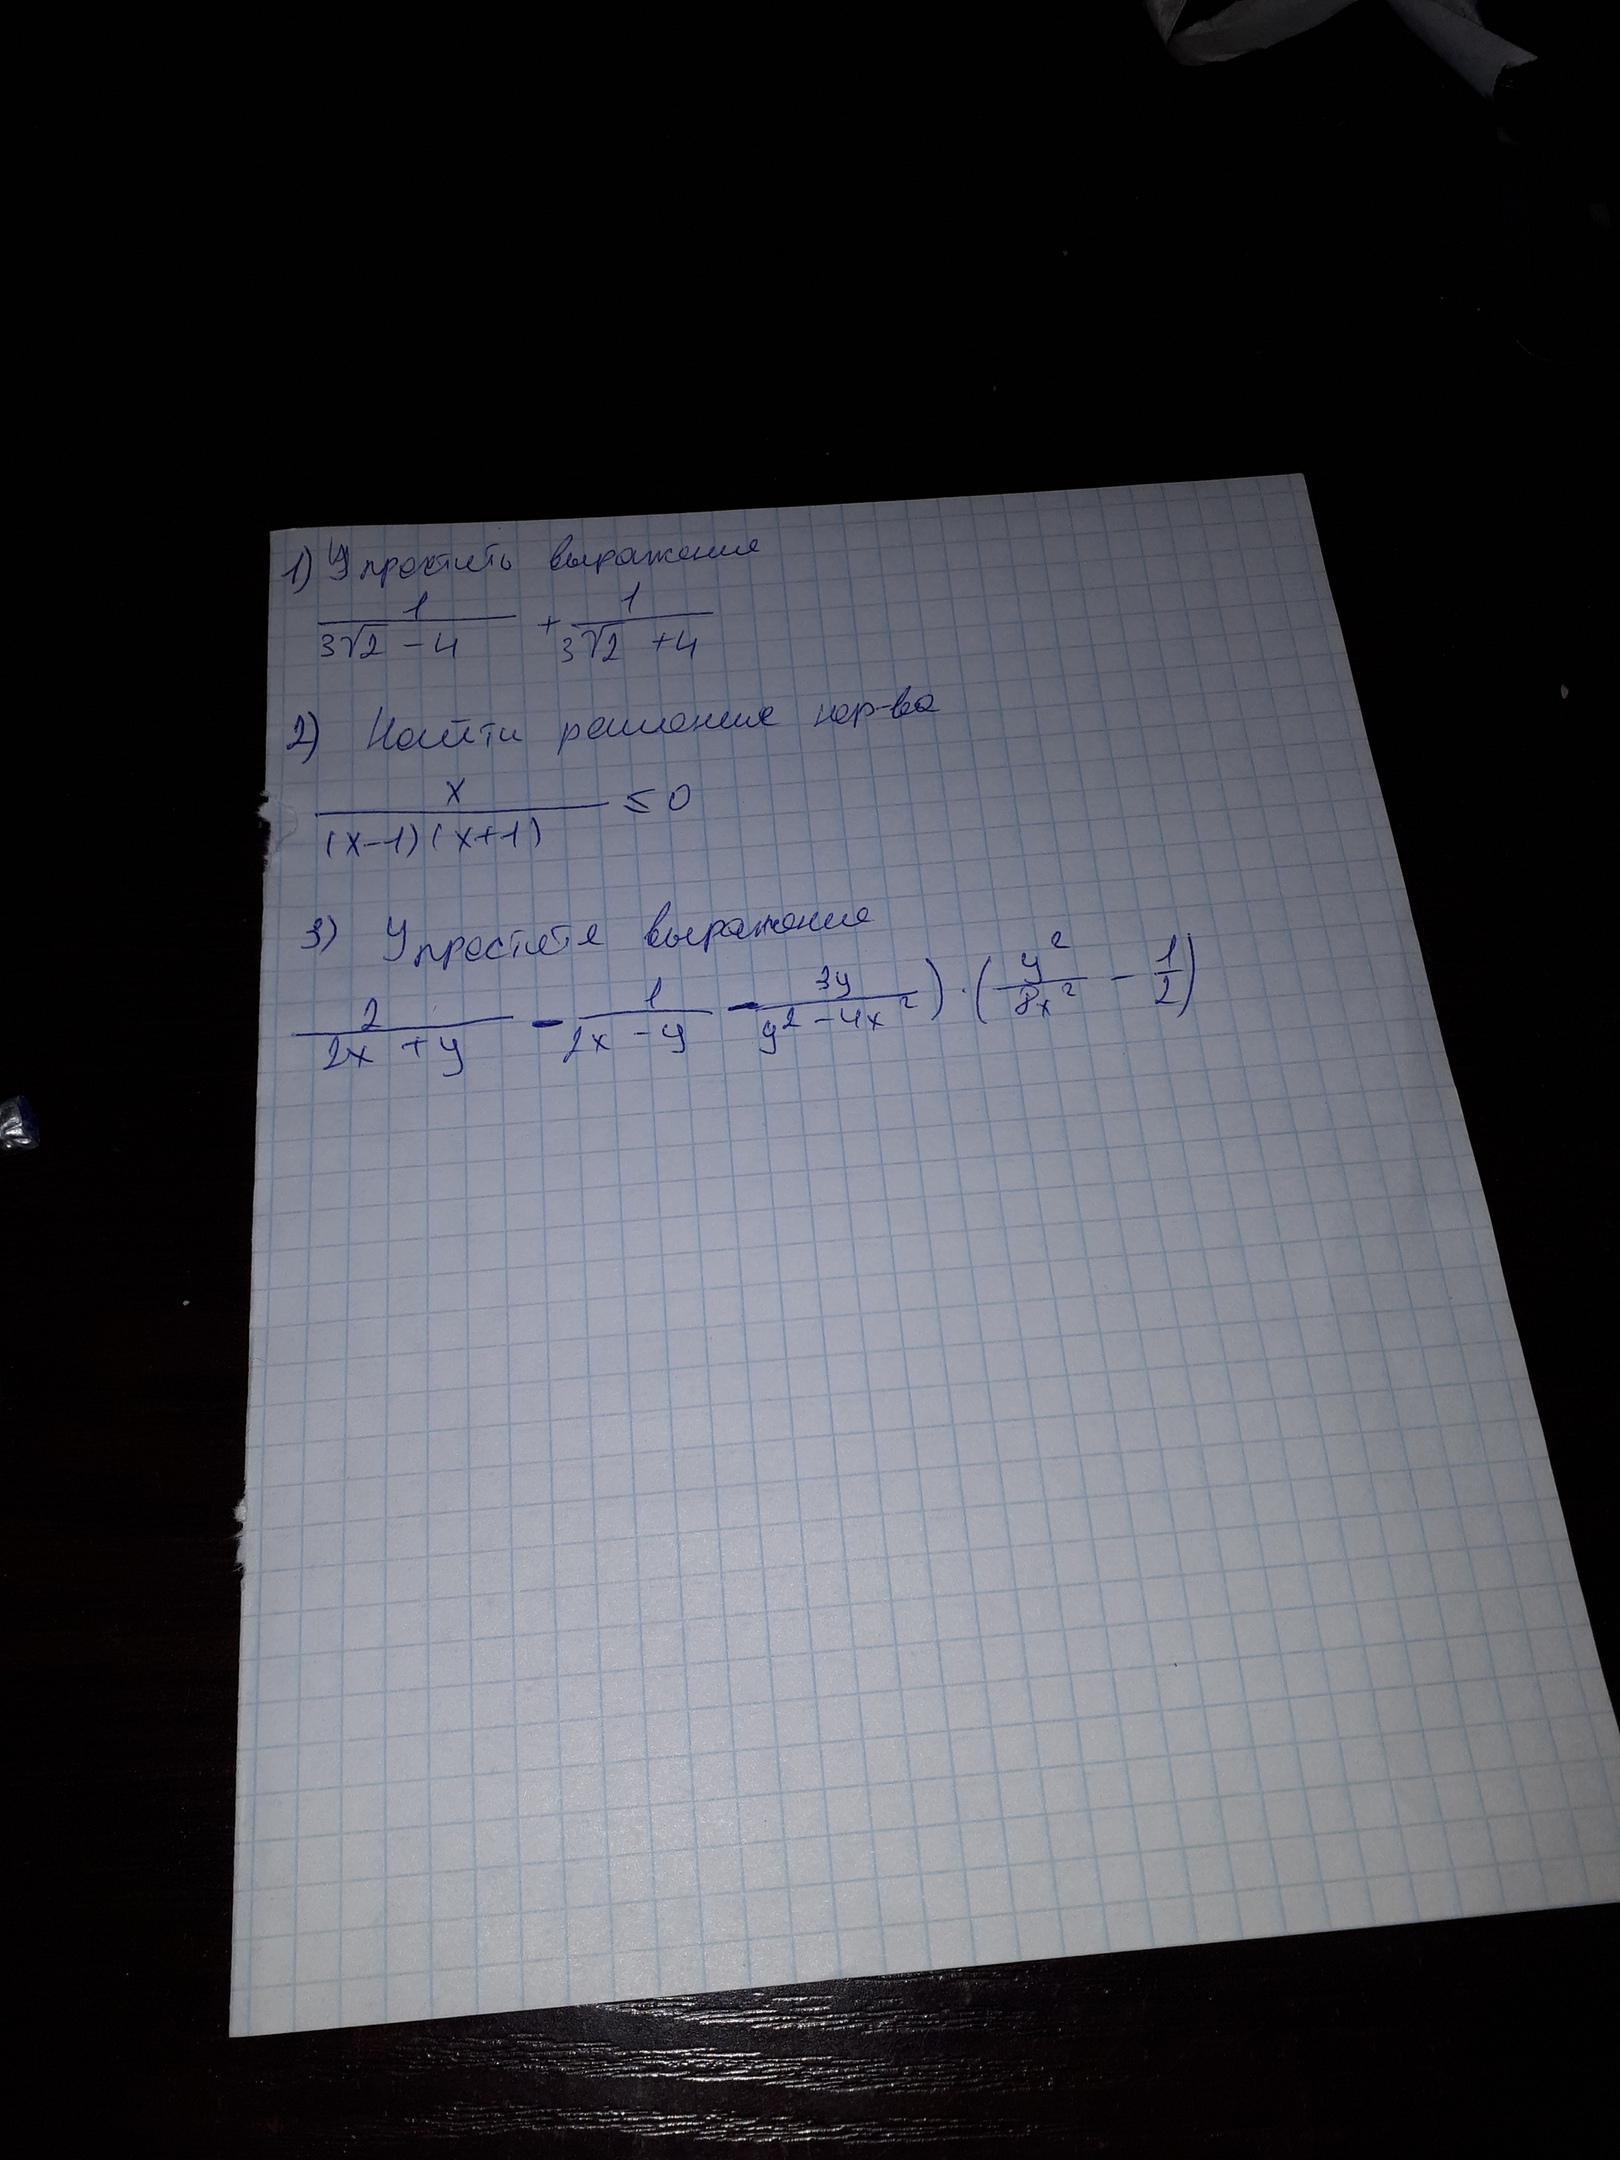 1) Упростить выражение
1/(3√2 - 4) + 1/(3√2 + 4)
2) Найти решение нер-ва
x/((x-1)(x+1)) ≤ 0
3) Упростите выражение
2/(2x + y) - 1/(2x - y) - 3y/(y² - 4x²)) · (y²/8x² - 1/2)